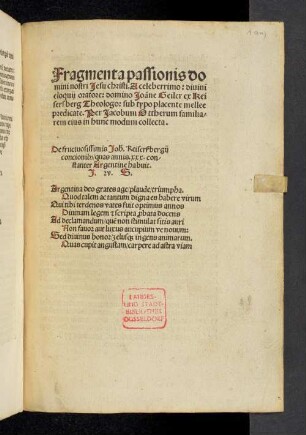 Fragmenta passionis do
mini nostri Jesu christi. A celeberrimo diuini
eloquij oratore: domino Joāne Geiler ex Kei
sersberg Theologo: sub typo placente mellee
predicate. Per Jacobum Ottherum familia
rem eius in hunc modum collecta.
De fructuosissimis Joh. Keisersbergij
concionib/quas annis. xxx. con
stanter Argentine habuit.
J. W. S.
Argentina deo grates age: plaude, triūpha:
Quod talem ac tantum digna es habere virum
Qui tibi ter denos vates fuit optimus annos
Diuinam legem: scripta docens
Ad declamandum/ quē non stimulat sitis auri
Non fauor aut luctus aucupium ve nouum:
Sed diuinus honor: zelusq; ingens animarum,
Quas cupit angustam carpere ad astra viam
LANDES-
UND STADT-
BIBLIOTHEK
DÜSSELDORF